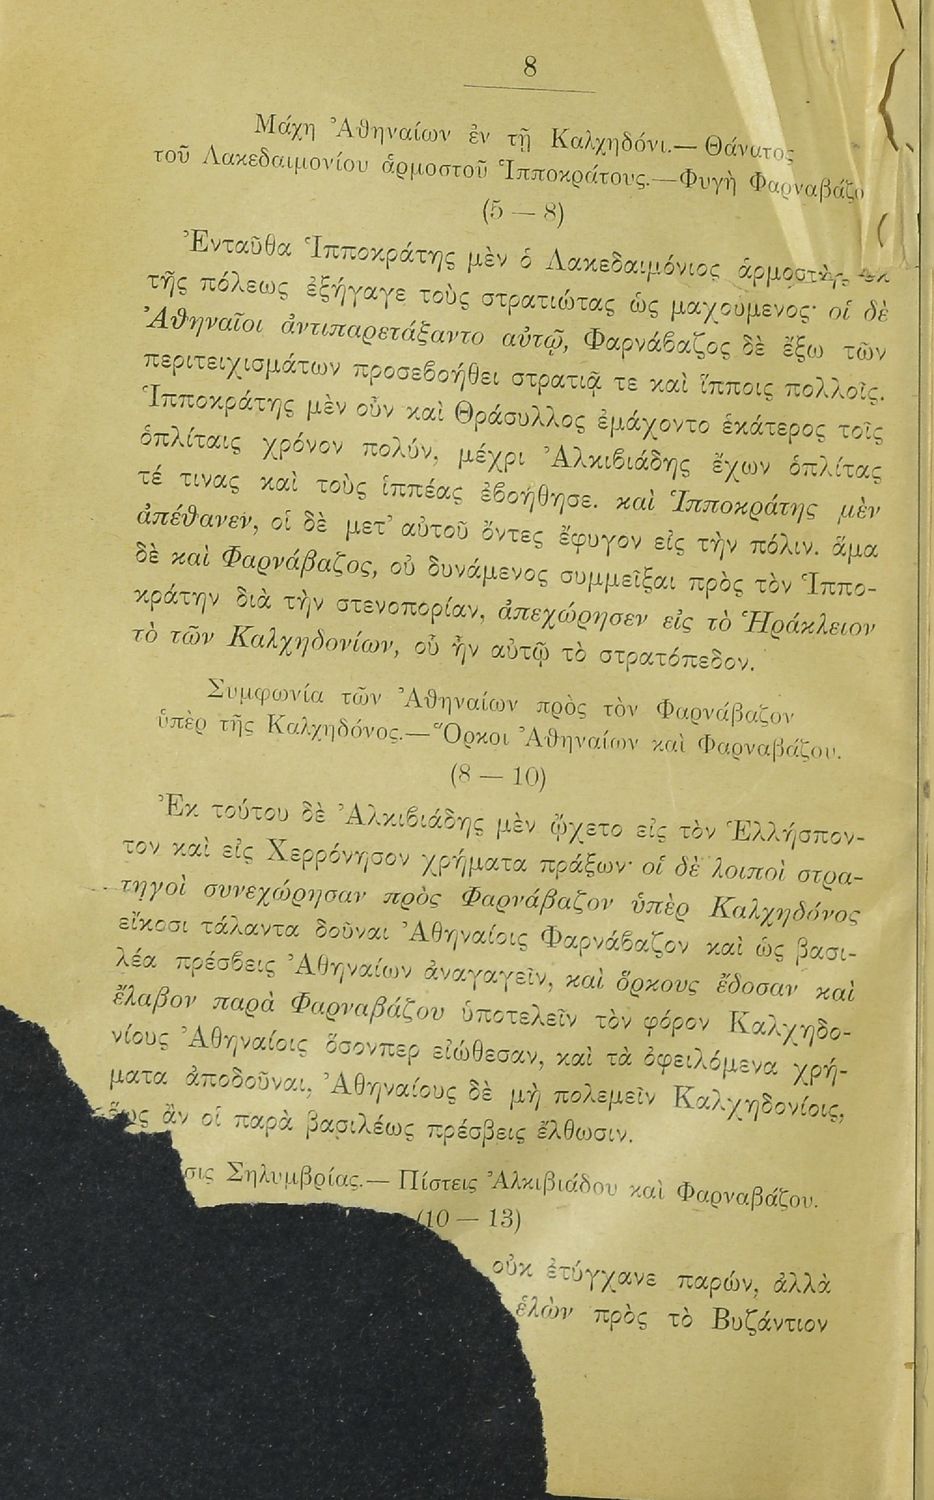 8
Μάχη Ἀθηναίων ἐν τῇ Καλχηδόνι.— Θάνατος
τοῦ Λακεδαιμονίου ἁρμοστοῦ Ἱπποκράτους.—Φυγὴ Φαρναβάζο
(5 — 8)
Ἐνταῦθα Ἱπποκράτης μὲν ὁ Λακεδαιμόνιος ἁρμοστὴς ἐκ
τῆς πόλεως ἐξήγαγε τοὺς στρατιώτας ὡς μαχούμενος· οἱ δὲ
Ἀθηναῖοι ἀντιπαρετάξαντο αὐτῷ, Φαρνάβαζος δὲ ἔξω τῶν
περιτειχισμάτων προσεβοήθει στρατιᾷ τε καὶ ἵπποις πολλοῖς.
Ἱπποκράτης μὲν οὖν καὶ Θράσυλλος ἐμάχοντο ἑκάτερος τοῖς
ὁπλίταις χρόνον πολύν, μέχρι Ἀλκιβιάδης ἔχων ὁπλίτας
τέ τινας καὶ τοὺς ἱππέας ἐβοήθησε. καὶ Ἱπποκράτης μὲν
ἀπέθανεν, οἱ δὲ μετ' αὐτοῦ ὄντες ἔφυγον εἰς τὴν πόλιν. ἅμα
δὲ καὶ Φαρνάβαζος, οὐ δυνάμενος συμμεῖξαι πρὸς τὸν Ἱππο-
κράτην διὰ τὴν στενοπορίαν, ἀπεχώρησεν εἰς τὸ Ἡράκλειον
τὸ τῶν Καλχηδονίων, οὗ ἦν αὐτῷ τὸ στρατόπεδον.
Συμφωνία τῶν Ἀθηναίων πρὸς τὸν Φαρνάβαζον
ὑπὲρ τῆς Καλχηδόνος.—Ὅρκοι Ἀθηναίων καὶ Φαρναβάζου.
(8 — 10)
Ἐκ τούτου δὲ Ἀλκιβιάδης μὲν ᾤχετο εἰς τὸν Ἑλλήσπον-
τον καὶ εἰς Χερρόνησον χρήματα πράξων· οἱ δὲ λοιποὶ στρα-
τηγοὶ συνεχώρησαν πρὸς Φαρνάβαζον ὑπὲρ Καλχηδόνος
εἴκοσι τάλαντα δοῦναι Ἀθηναίοις Φαρνάβαζον καὶ ὡς βασι-
λέα πρέσβεις Ἀθηναίων ἀναγαγεῖν, καὶ ὅρκους ἔδοσαν καὶ
ἔλαβον παρὰ Φαρναβάζου ὑποτελεῖν τὸν φόρον Καλχηδο-
νίους Ἀθηναίοις ὅσονπερ εἰώθεσαν, καὶ τὰ ὀφειλόμενα χρή-
ματα ἀποδοῦναι, Ἀθηναίους δὲ μὴ πολεμεῖν Καλχηδονίοις,
ἕως ἂν οἱ παρὰ βασιλέως πρέσβεις ἔλθωσιν.
σις Σηλυμβρίας.— Πίστεις Ἀλκιβιάδου καὶ Φαρναβάζου.
(10 — 13)
οὐκ ἐτύγχανε παρών, ἀλλὰ
ἑλὼν πρὸς τὸ Βυζάντιον